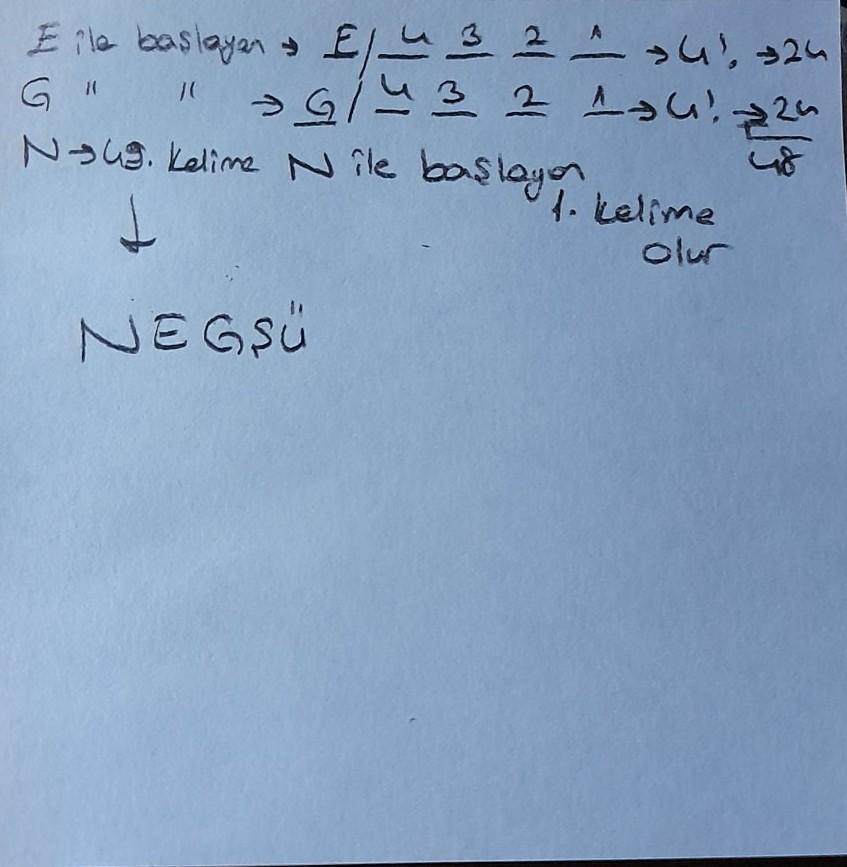 E ile başlayan → E/ 4 3 2 1 → 4! → 24
G " " → G/ 4 3 2 1 → 4! → 24
48
N → 49. kelime N ile başlayan
1. kelime
olur
↓
NEGŞÜ